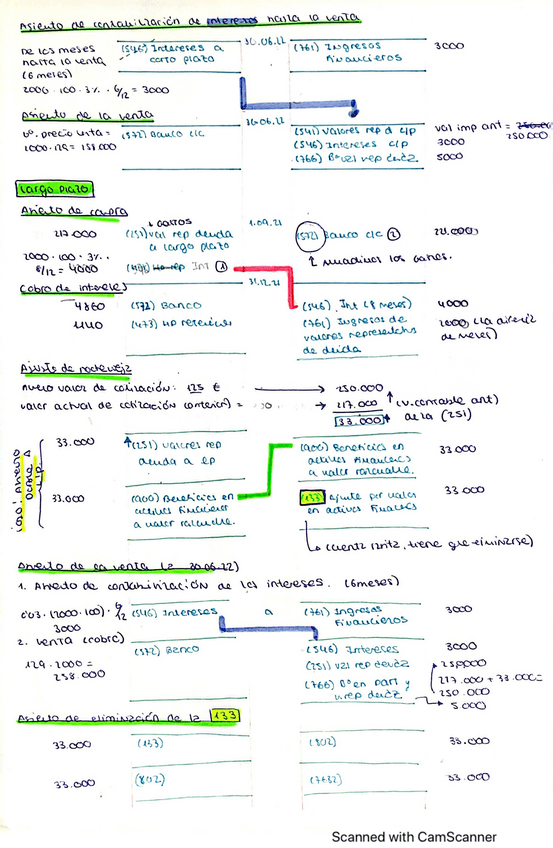 Asiento de contabilización de intereses hasta la venta
De los meses
hasta la venta
(6 meses)
2000 · 100 · 3% · 6/12 = 3000
(546) Intereses a
corto plazo
30.06.22
(761) Ingresos
financieros
3000
Asiento de la venta
(572) Banco c/c
30.06.22
(541) Valores rep d c/p
(546) Intereses c/p
(766) Bº val rep deuda
val imp ant =
250.000
3000
5000
Largo plazo
Asiento de compra
217.000
2000 · 100 · 3% ·
8/12 = 4000
↓ gastos
(251) val rep deuda
a largo plazo
Int ①
1.09.21
(572) Banco c/c ②
Cobro de intereses
4860
1140
(572) Banco
(473) HP retenciones
31.12.21
(546) Int (8 meses)
(761) Ingresos de
valores representativos
de deuda
4000
2000
de meses)
Ajuste de
nuevo valor de cotización: 125 €
→ 250.000
valor actual de cotización (anterior) =
→ 217.000
33.000
(v. contable ant)
de la (251)
33.000
↑(251) valores rep
deuda a lp
(900) Beneficios en
activos financieros
a valor razonable.
33.000
33.000
(900) Beneficios en
activos financieros
a valor razonable.
(133) ajuste por valor
en activos financ
33.000
tiene que eliminarse)
Asiento de la venta (z 30.06.22)
1. Asiento de contabilización de los intereses. (6 meses)
0'03 · (2000 · 100) · 6/12
3000
(546) Intereses
a
(761) Ingresos
financieros
3000
2. Venta (cobro)
129 · 2000 =
258.000
(572) Banco
(546) Intereses
(251) val rep deuda
(766) Bº en part y
v. rep deuda
3000
250000
217.000 + 33.000 =
250.000
5.000
Asiento de eliminación de la 133
33.000
(133)
(802)
33.000
33.000
(802)
(7632)
33.000
Scanned with CamScanner